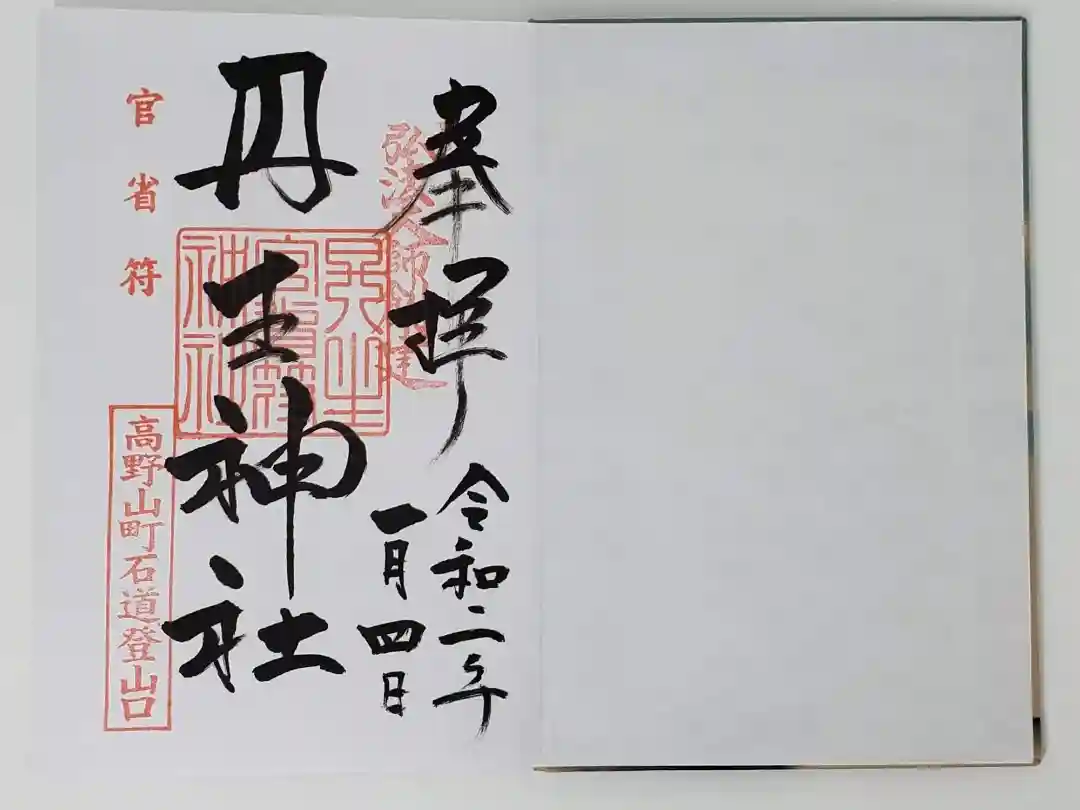 奉拝
弘法大師創建
令和二年
一月四日
丹生神社
丹生
官省符
神社
官省符
高野山町石道登山口